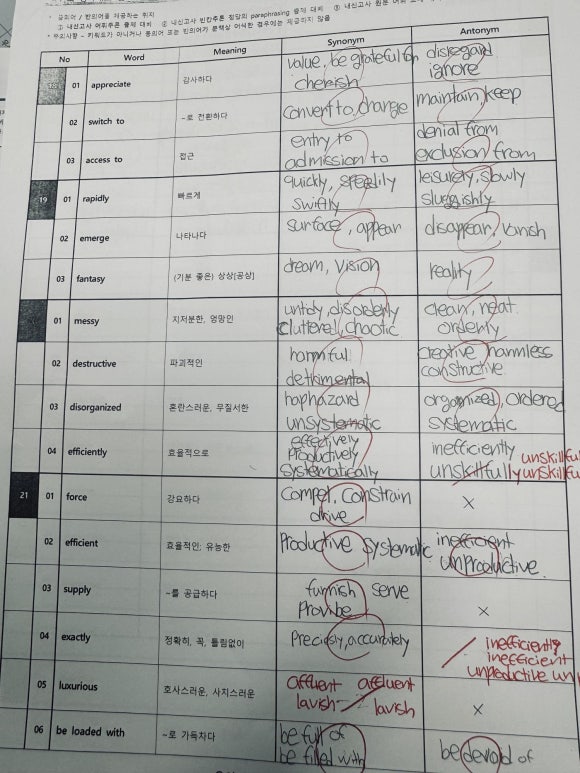 * 유의어 / 반의어를 제공하는 취지
① 내신고사 어휘주관 출제 대비 ② 내신고사 빈칸추론 정답의 paraphrasing 출제 대비 ③ 내신고사 원문 어휘
* 유의사항 – 키워드가 아니거나 동의어 또는 반의어가 문맥상 어색한 경우에는 제공하지 않음
No Word Meaning Synonym Antonym
18 01 appreciate 감사하다 value, be grateful for disregard
cherish ignore
02 switch to ~로 전환하다 convert to, change maintain, keep
03 access to 접근 entry to denial from
admission to exclusion from
19 01 rapidly 빠르게 quickly, speedily leisurely, slowly
swiftly sluggishly
02 emerge 나타나다 surface, appear disappear, vanish
03 fantasy (기분 좋은) 상상[공상] dream, vision reality
01 messy 지저분한, 엉망인 untidy, disorderly clean, neat
cluttered, chaotic orderly
02 destructive 파괴적인 harmful creative harmless
detrimental constructive
03 disorganized 혼란스러운, 무질서한 haphazard organized, ordered
unsystematic systematic
04 efficiently 효율적으로 effectively inefficiently unskillfu
Productively unskillfully unskillfu
systematically
21 01 force 강요하다 compel, constrain ×
drive
02 efficient 효율적인; 유능한 Productive systematic inefficient
unproductive
03 supply ~를 공급하다 furnish serve ×
Provide
04 exactly 정확히, 꼭, 틀림없이 Precisly, accurately inefficiently
inefficient
unproductive un
05 luxurious 호사스러운, 사치스러운 affluent affluent ×
lavish lavish
06 be loaded with ~로 가득차다 be full of be devoid of
be filled with